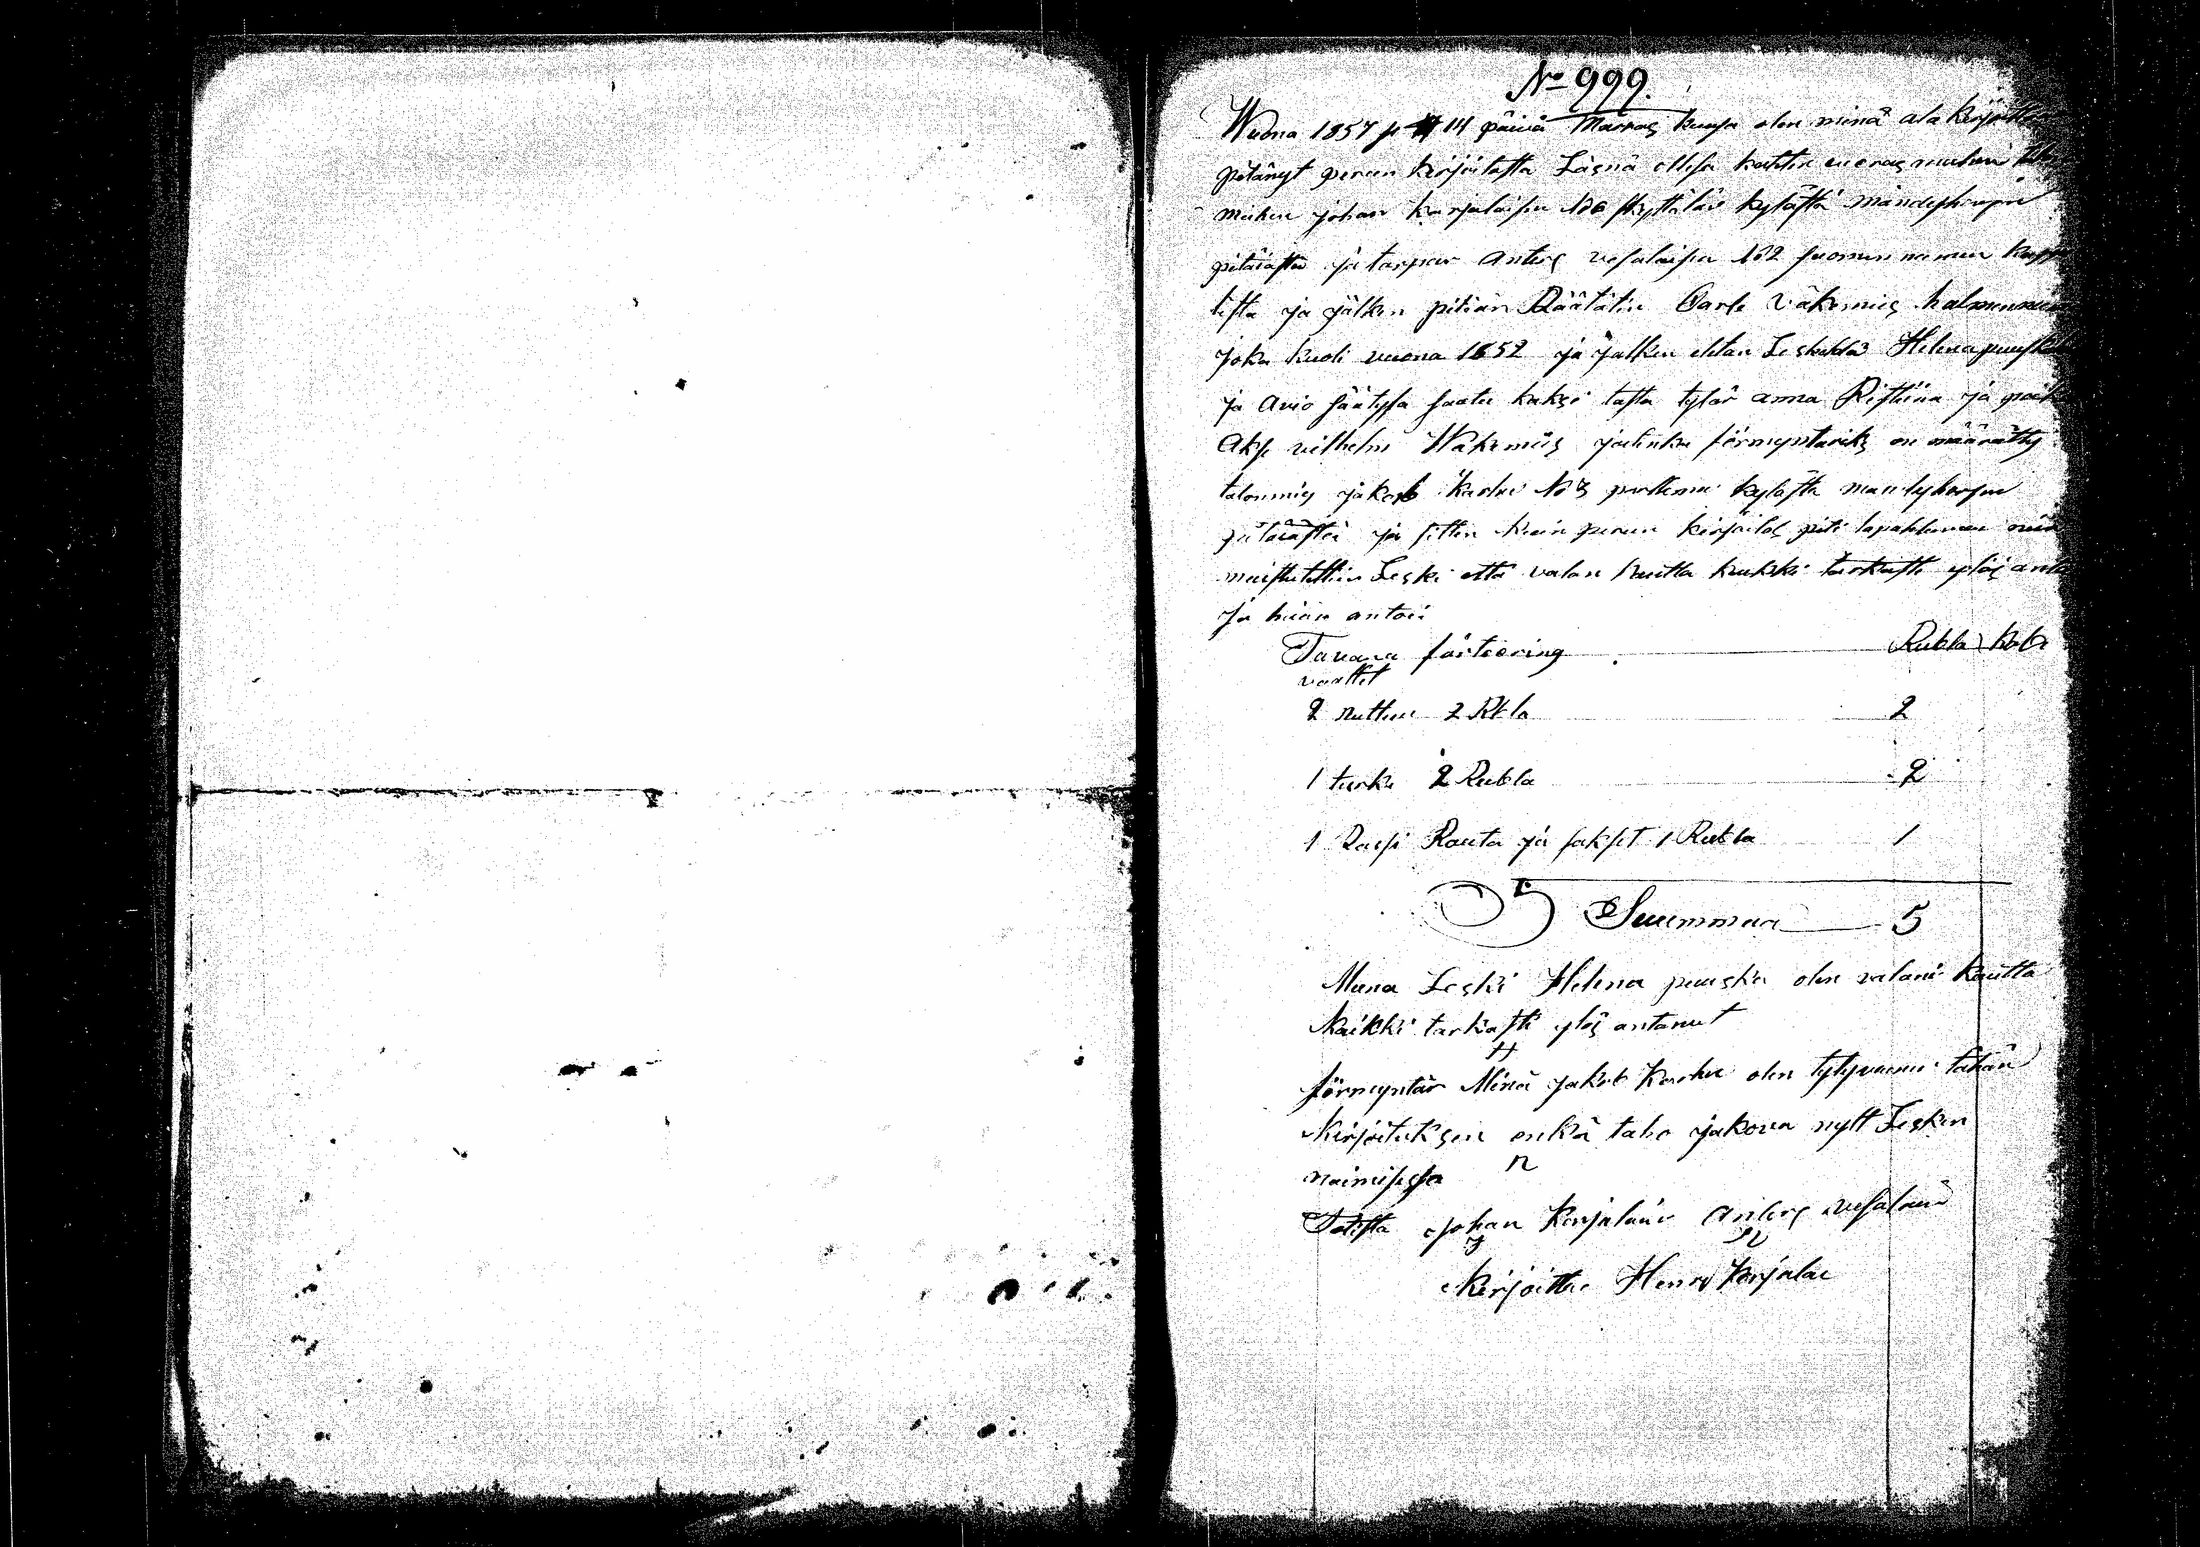 No 999.
Wuona 1857 p 14 päivä Marras kuusa olen minä ala kirjoitta
pitänyt perun kirjoitusta Läsnä ollesa kahden
miehen johan karjalaisen No 6 kylästä mändyharjun
pitäiästä ja tarpur Anters vesalaisen No 2 suomen niemen kapp
lista ja jälken pitiän Räätälin Carle Väkemies
joka kuoli vuona 1852 ja jälken eltän Leskeldä Helena puuska
ja Avio säätysä saatu kaksi lasta tytär anna Ristiina ja poik
Aksl vilhelm Wäkemies joihnka förmyntariks on määrätty
talonmies jakob karhu No 3 kylästä mandyharjun
pitäiästä ja sitten kuin perun kirjoitos piti tapahtuman niin
muistutettiin Leski että valan kautta kaikki tarkasti ylös anta
ja hiän antoi
Tavara förteoring Rubla kob
vaattet
2 nuttuu 2 Rbla 2
1 turki 2 Rubla 2
1 Rasi Rauta ja sakset 1 Rubla 1
Suummaa 5
Muna Leski Helena puuska olen valani kautta
kaikki tarkasti ylös antanut
förmyntär Minä jakob karhu olen tytyväinen tähän
kirjoituksen enkä taho jakova nytt Lesken
naimisesa
Totista Johan karjalain Anters vesalain
kirjoittu Henry karjalai